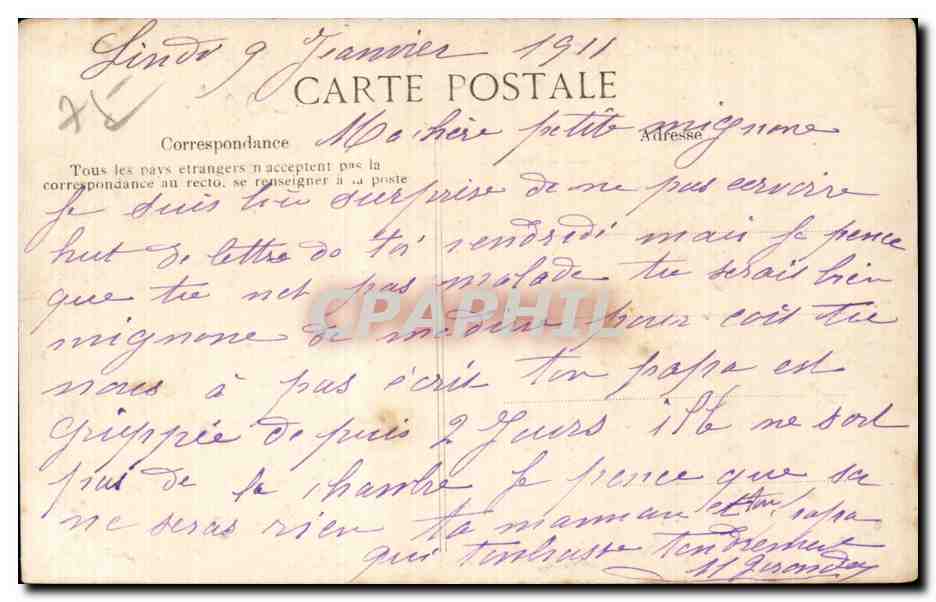 9 Janvier 1911
75
CARTE POSTALE
Ma chère petite mignone
Correspondance Adresse
Tous les pays etrangers n'acceptent pas la
correspondance au recto, se renseigner à la poste
Je suis surprise de ne pas
de lettre de toi vendredi mais Je pence
que tu net pas malade tu serais bien
CPAPHIL
mignone de pour tu
nous à pas écrit ton papa est
Grippée depuis 2 Jours ne sort
pas de la chambre Je pence que sa
ne seras rien ta manman et ton papa
qui tembrasse tendrement